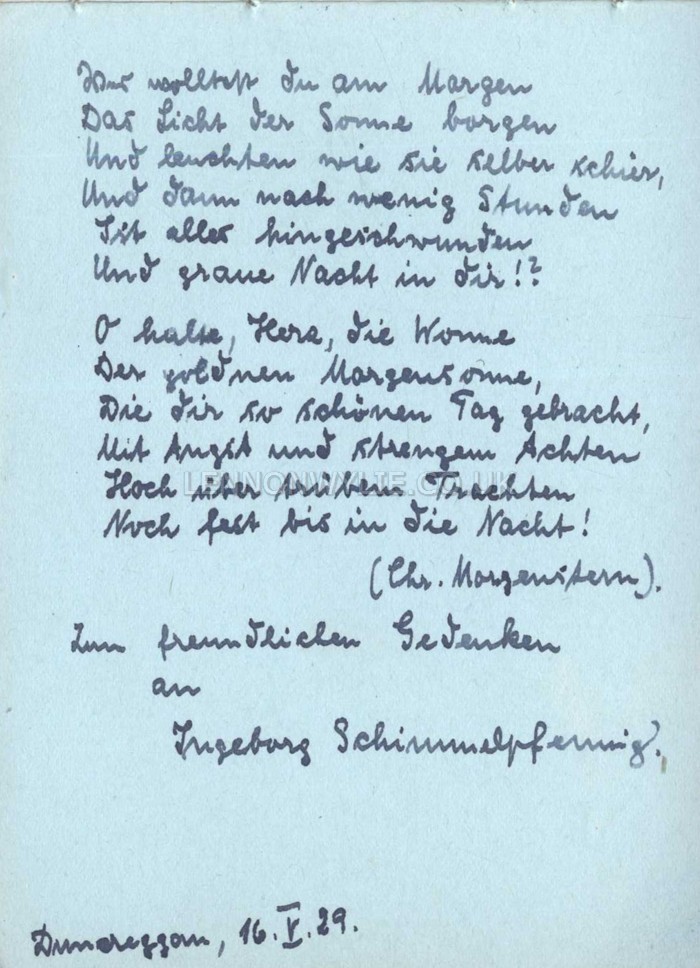 Was wolltest du am Morgen
Das Licht der Sonne borgen
Und leuchten wie sie selber schier,
Und dann nach wenig Stunden
Ist alles hingeschwunden
Und graue Nacht in dir!?
O halte, Herz, die Wonne
Der goldnen Morgensonne,
Die dir so schönen Tag gebracht,
Mit Angst und strengem Achten
Hoch über trübem Trachten
LENNONWYLIE.CO.UK
Noch fest bis in die Nacht!
(Chr. Morgenstern).
Zum freundlichen Gedenken
an
Ingeborg Schimmelpfennig.
Dunareggan, 16.V.29.